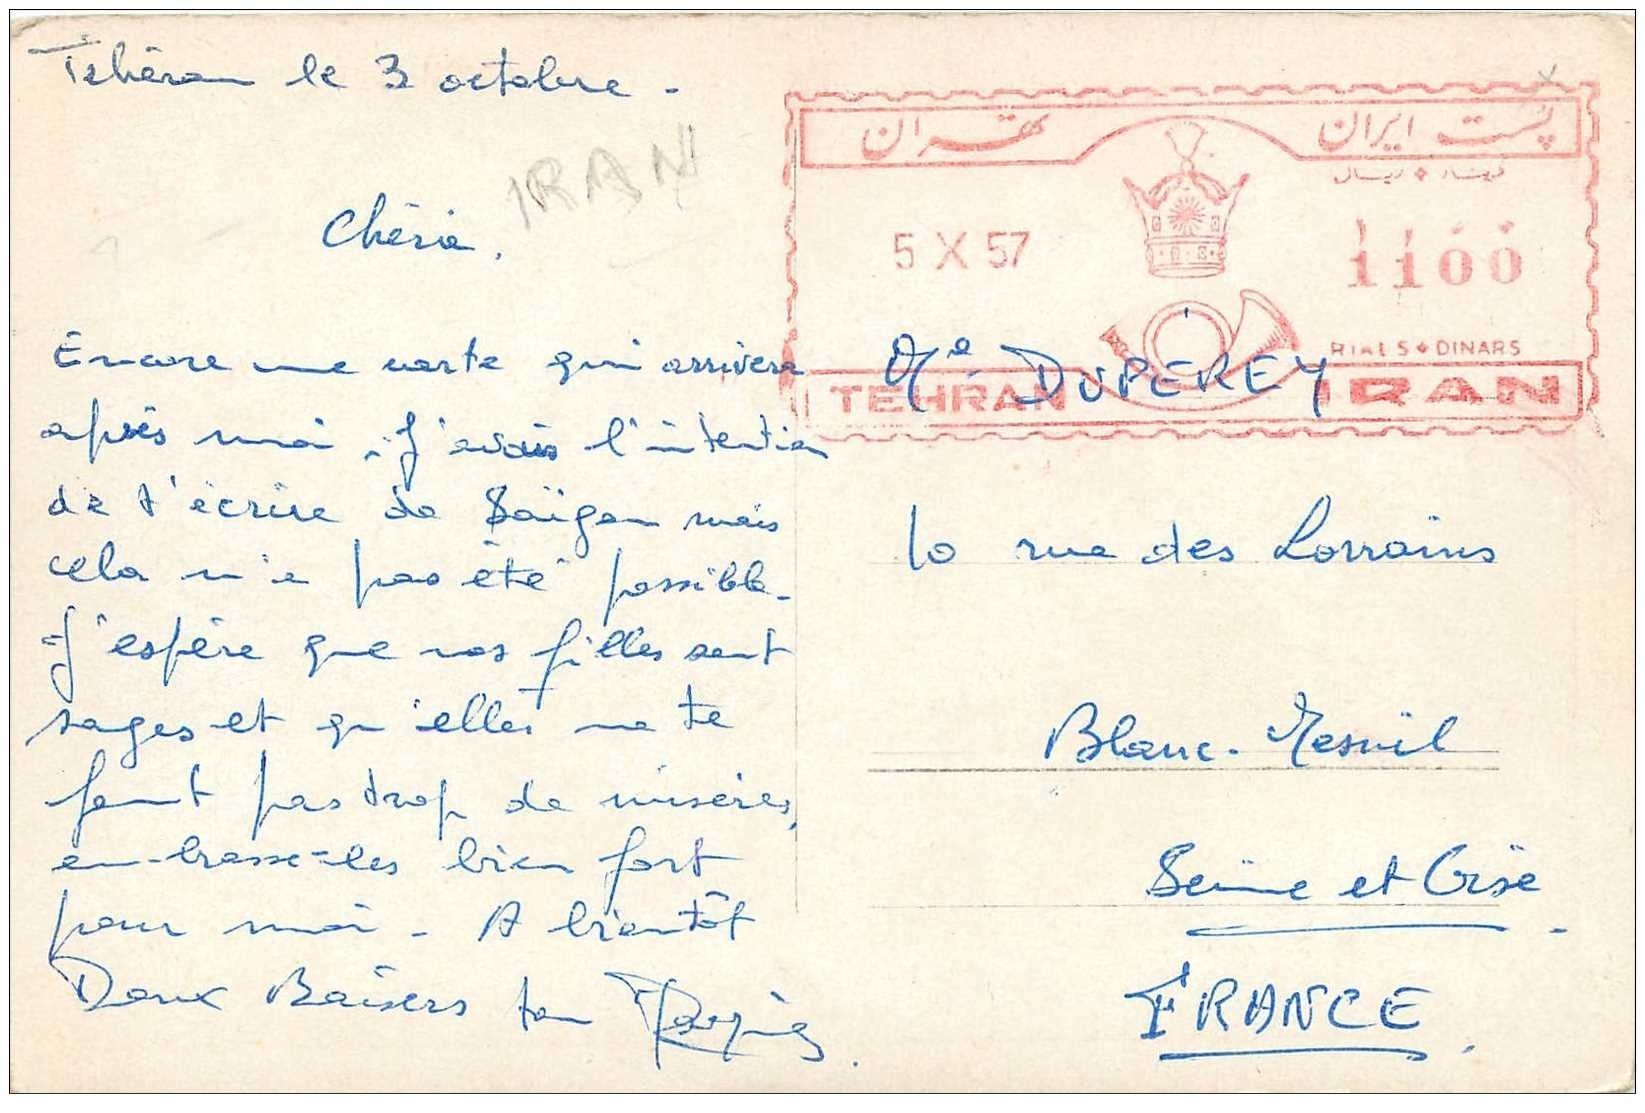 Téhéran le 3 octobre -
IRAN
Chérie,
Encore une carte qui arrivera
après moi. J'avais l'intention
de t'écrire de Saïgon mais
cela n'a pas été possible -
J'espère que nos filles sont
sages et qu'elles ne te
font pas trop de misères,
embrasse-les bien fort
pour moi - A bientôt
Doux Baisers ton
تهران
پست ایران
دینار ریال
5 X 57
1100
RIALS DINARS
TEHRAN IRAN
Me DUPEREY
10 rue des Lorrains
Blanc-Mesnil
Seine et Oise
FRANCE